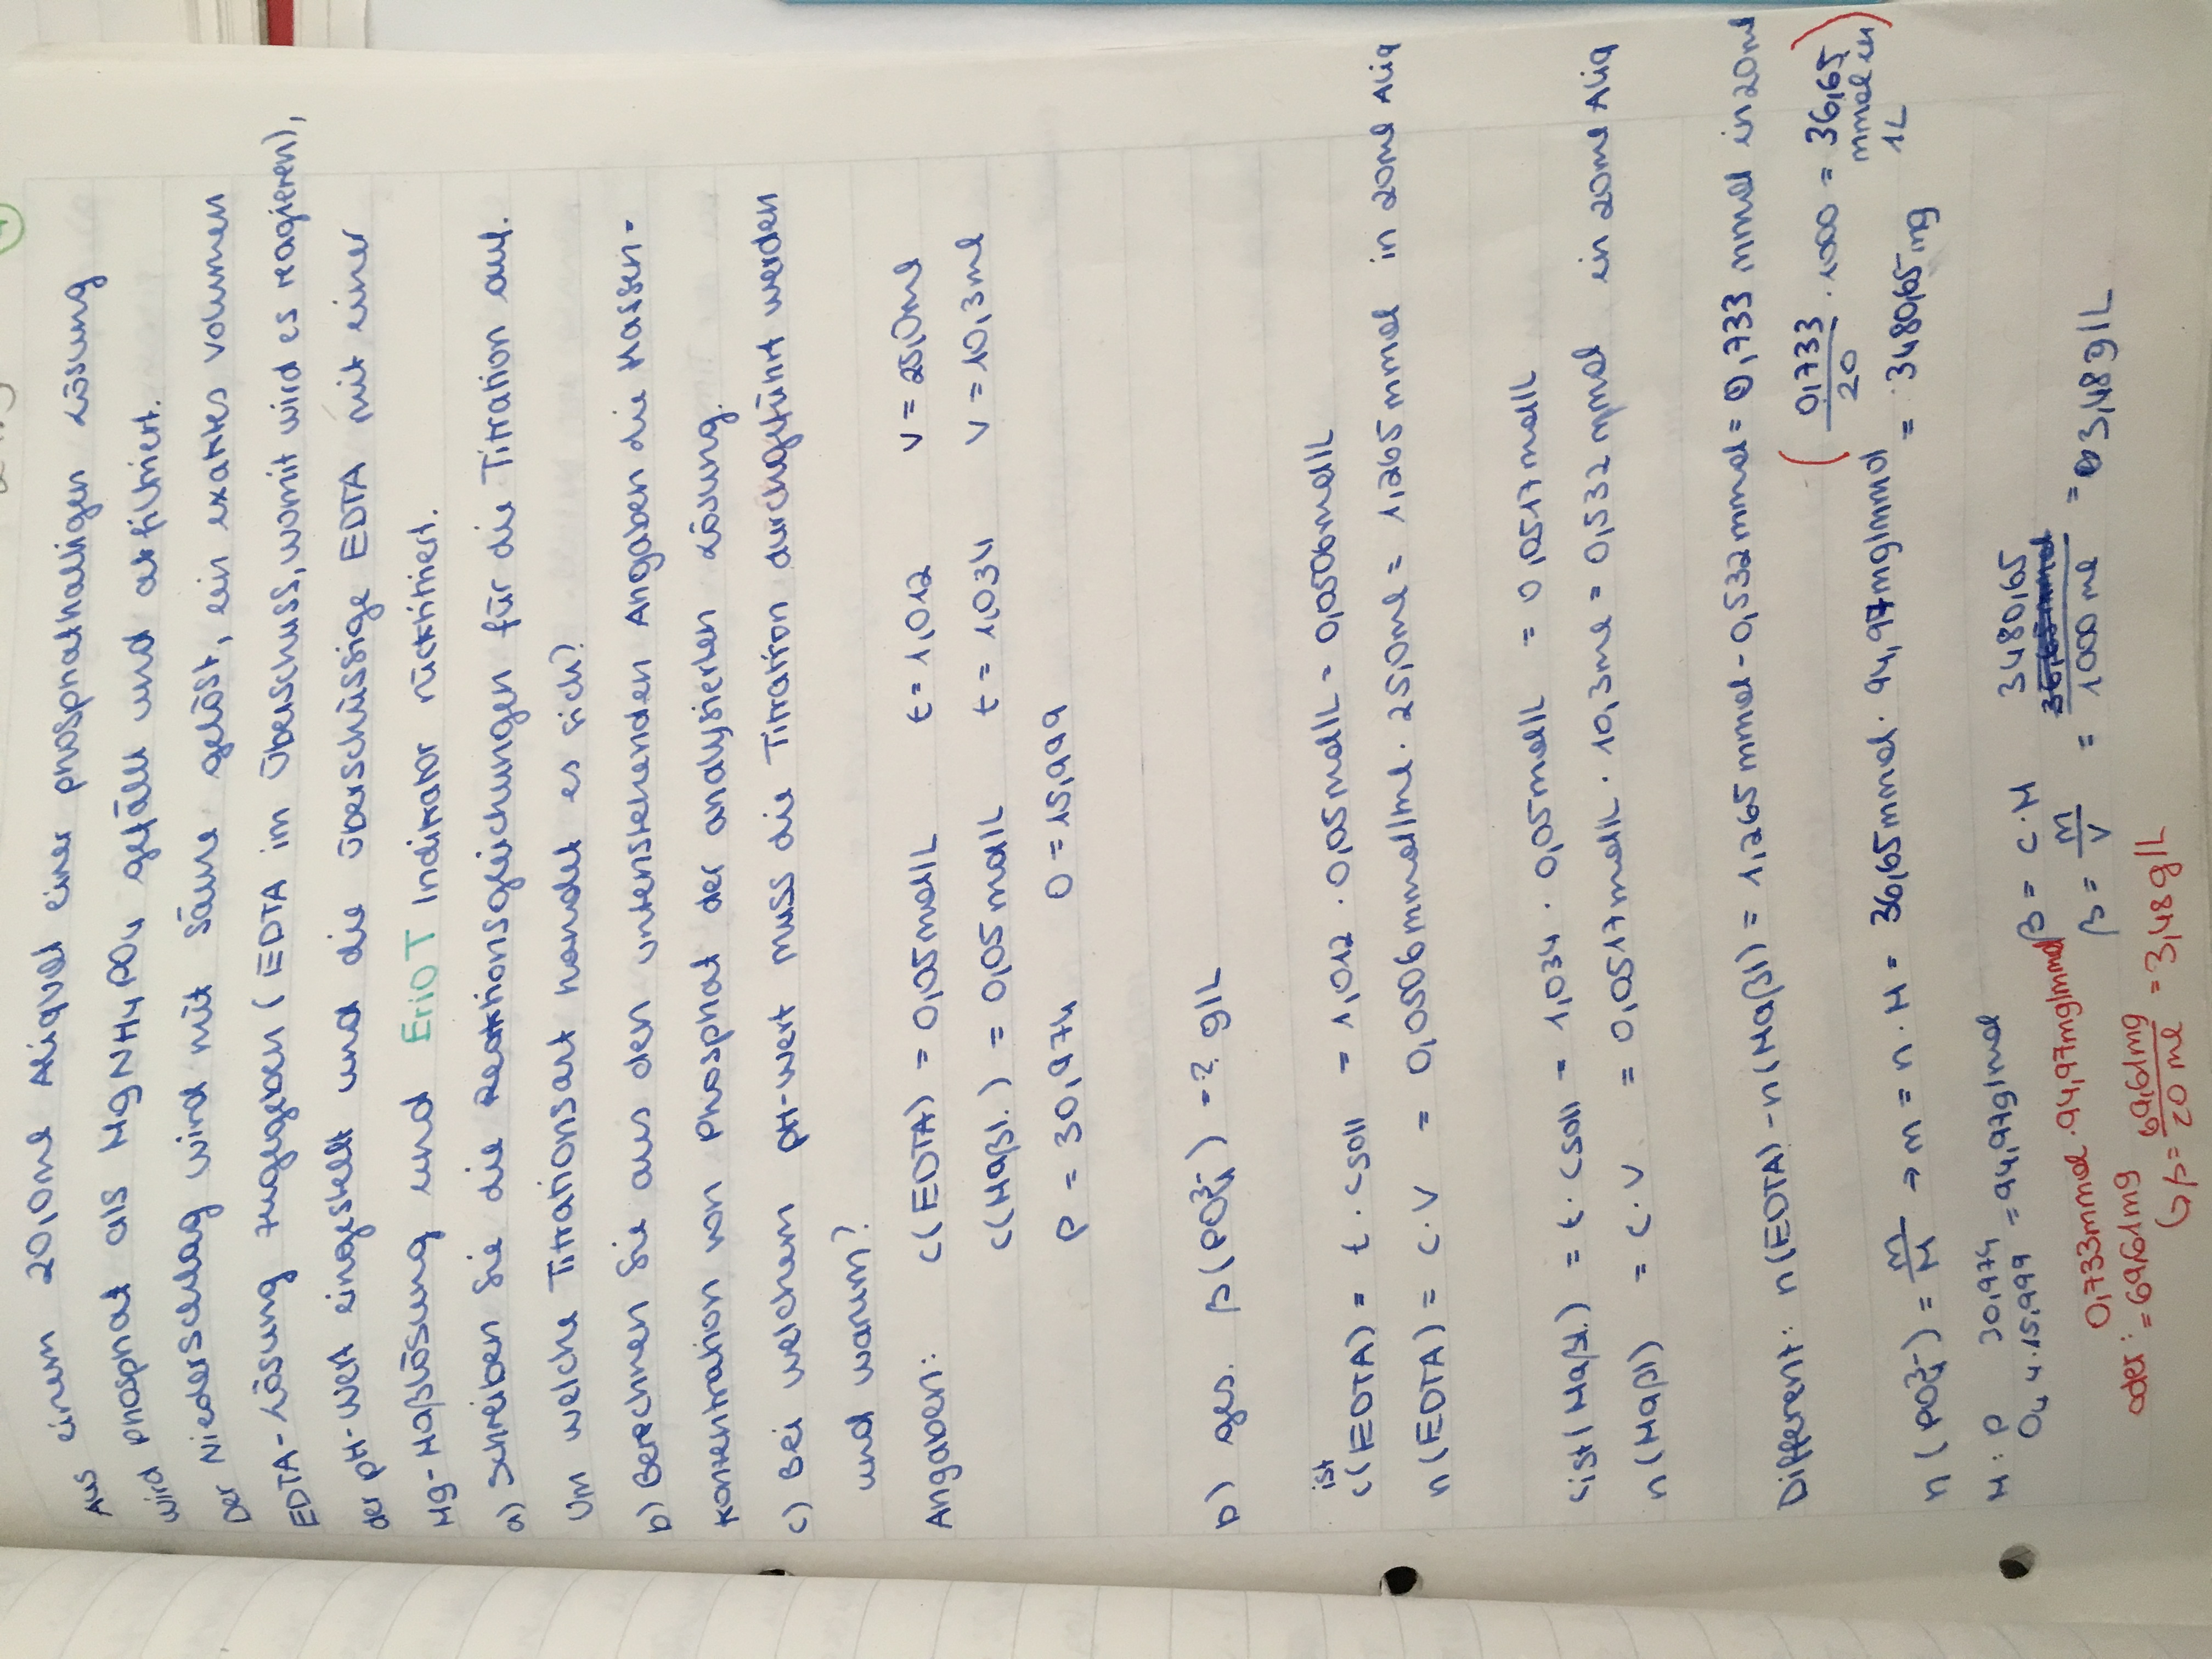 Aus einem 20,0ml Aliquot einer phosphathaltigen Lösung
wird Phosphat als MgNH4PO4 gefällt und abfiltriert.
Der Niederschlag wird mit Säure gelöst, ein exaktes Volumen
EDTA-Lösung zugegeben (EDTA im Überschuss, womit wird es reagieren),
der pH-Wert eingestellt und die überschüssige EDTA mit einer
Mg-Maßlösung und ErioT Indikator rücktitriert.
a) Schreiben Sie die Reaktionsgleichungen für die Titration auf.
Um welche Titrationsart handelt es sich?
b) Berechnen Sie aus den untenstehenden Angaben die Massen-
konzentration von Phosphat der analysierten Lösung.
c) Bei welchem pH-Wert muss die Titration durchgeführt werden
und warum?
Angaben: c(EDTA) = 0,05mol/L t = 1,012 V = 25,0ml
c(Maßl.) = 0,05mol/L t = 1,034 V = 10,3ml
P = 30,974 O = 15,999
b) ges. β(PO₄³⁻) = ? g/L
ist
c(EDTA) = t · csoll = 1,012 · 0,05mol/L = 0,0506mol/L
n(EDTA) = c · V = 0,0506mmol/ml · 25,0ml = 1,265mmol in 20ml Aliq
cist(Maßl.) = t · csoll = 1,034 · 0,05mol/L = 0,0517mol/L
n(Maßl) = c · V = 0,0517mol/L · 10,3ml = 0,532mmol in 20ml Aliq
Differenz: n(EDTA) - n(Maßl) = 1,265mmol - 0,532mmol = 0,733 mmol in 20ml
(0,733/20 · 1000 = 36,65 mmol in 1L)
n(PO₄³⁻) = m/M → m = n · M = 36,65mmol · 94,97mg/mmol = 3480,65mg
M: P 30,974
O₄ 4·15,999 = 94,97g/mol
β = c · M
β = m/V = 3480,65/1000ml = 3,48g/L
oder: 0,733mmol · 94,97mg/mmol
= 69,61mg
↳ β = 69,61mg/20ml = 3,48g/L